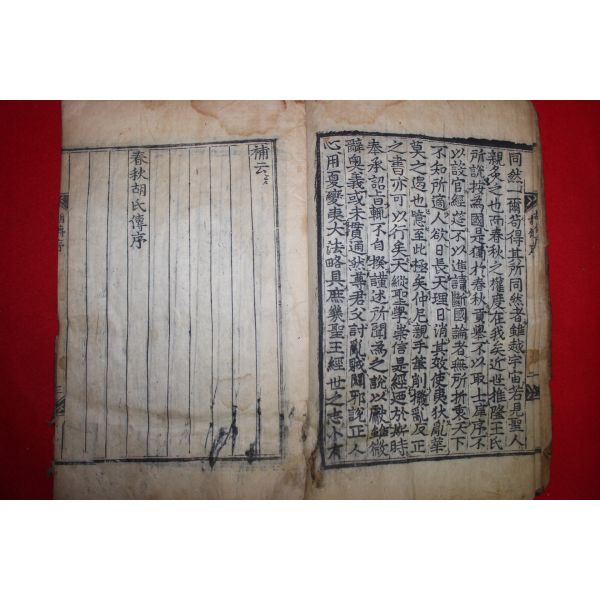 同然爾苟得其所同然者雖越宇宙若見聖人
親炙之也而春秋之權度在我矣近世推隆王氏
新說按為國是獨於春秋貢舉不以取士庠序不
以設官經筵不以進讀斷國論者無所折衷天下
不知所適人欲日長天理日消其效使夷狄亂華
莫之遏也噫至此極矣仲尼親手筆削撥亂反正
之書亦可以行矣天縱聖學崇信是經迺於斯時
奉承詔旨輒不自揆謹述所聞為之說以獻雖微
辭奧義或未貫通然尊君父討亂賊闢邪說正人
心用夏變夷大法略具庶幾聖王經世之志小有
補云
春秋胡氏傳序